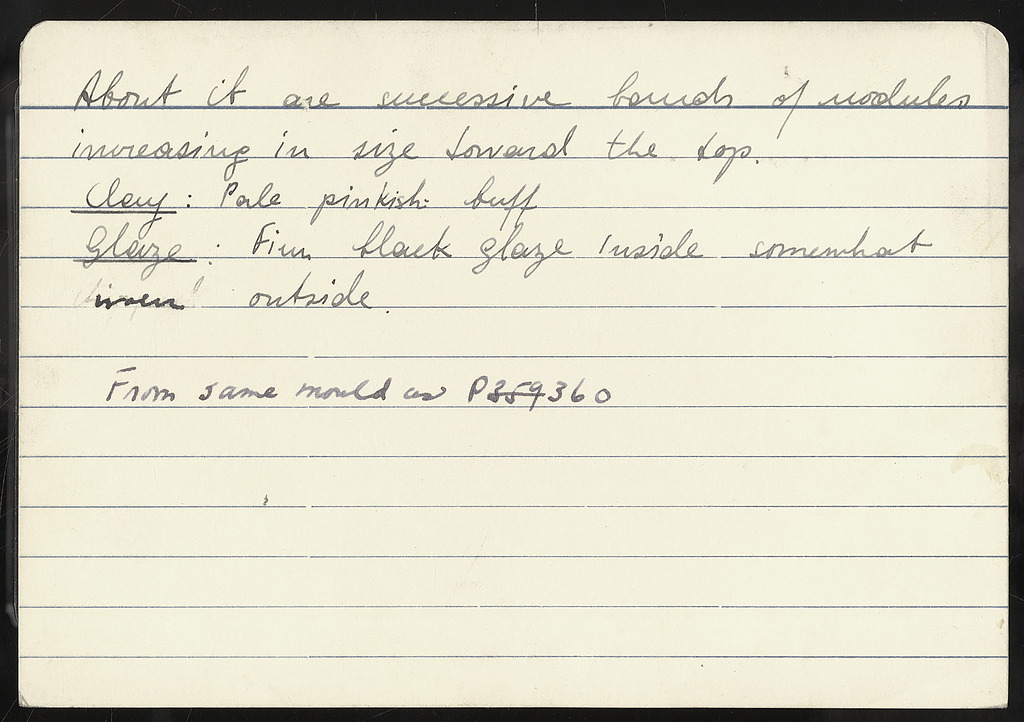 About it are successive bands of nodules
increasing in size toward the top.
Clay: Pale pinkish buff
Glaze: Firm black glaze inside somewhat
outside.
From same mould as P359360